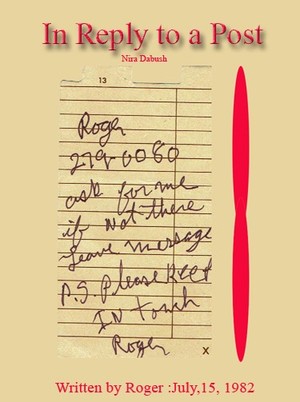 In Reply to a Post
Nira Dabush
13
Roger
279-0080
ask for me
if not there
Leave message
P.S. Please Keep
IN touch
Roger
X
Written by Roger :July,15, 1982